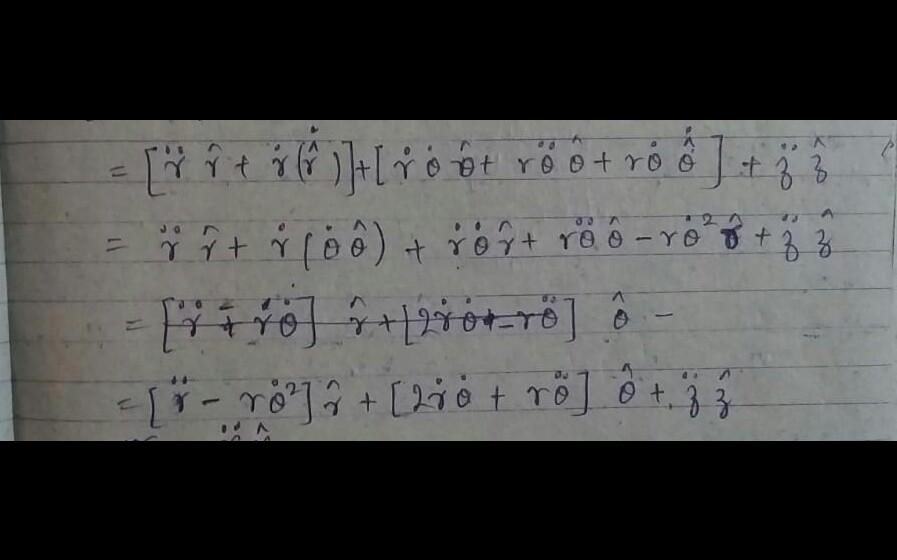 = [r̈ r̂ + ṙ(r̂̇)] + [ṙ θ̇ θ̂ + rθ̈ θ̂ + rθ̇ θ̂̇] + z̈ ẑ
= r̈ r̂ + ṙ(θ̇θ̂) + ṙθ̇r̂ + rθ̈ θ̂ - rθ̇² r̂ + z̈ ẑ
= [r̈ + ṙθ̇] r̂ + [2ṙθ̇ + - rθ̈] θ̂ -
= [r̈ - rθ̇²] r̂ + [2ṙθ̇ + rθ̈] θ̂ + z̈ ẑ